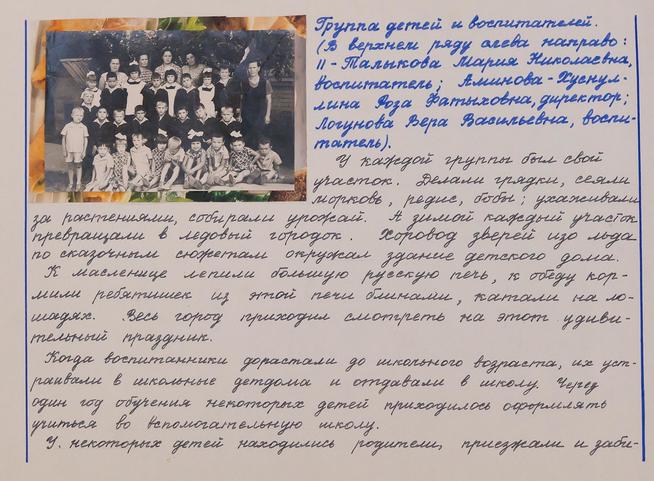 Группа детей и воспитателей.
(В верхнем ряду слева направо:
II - Талыкова Мария Николаевна,
воспитатель; Аминова-Хуснул-
лина Роза Фатыховна, директор;
Логунова Вера Васильевна, воспи-
татель).
У каждой группы был свой
участок. Делали грядки, сеяли
морковь, редис, бобы; ухаживали
за растениями, собирали урожай. А зимой каждый участок
превращали в ледовый городок. Хоровод зверей изо льда
по сказочным сюжетам окружал здание детского дома.
К масленице лепили большую русскую печь, к обеду кор-
мили ребятишек из этой печи блинами, катали на ло-
шадях. Весь город приходил смотреть на этот удиви-
тельный праздник.
Когда воспитанники дорастали до школьного возраста, их уст-
раивали в школьные детдома и отдавали в школу. Через
один год обучения некоторых детей приходилось оформлять
учиться во вспомогательную школу.
У некоторых детей находились родители, приезжали и заби-